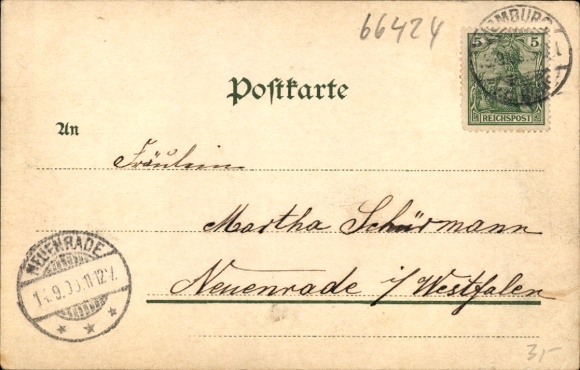 66424
5 5
REICHSPOST
Postkarte
An
Fräulein
Martha Schürmann
Neuenrade i/Westfalen
NEUENRADE
3,-